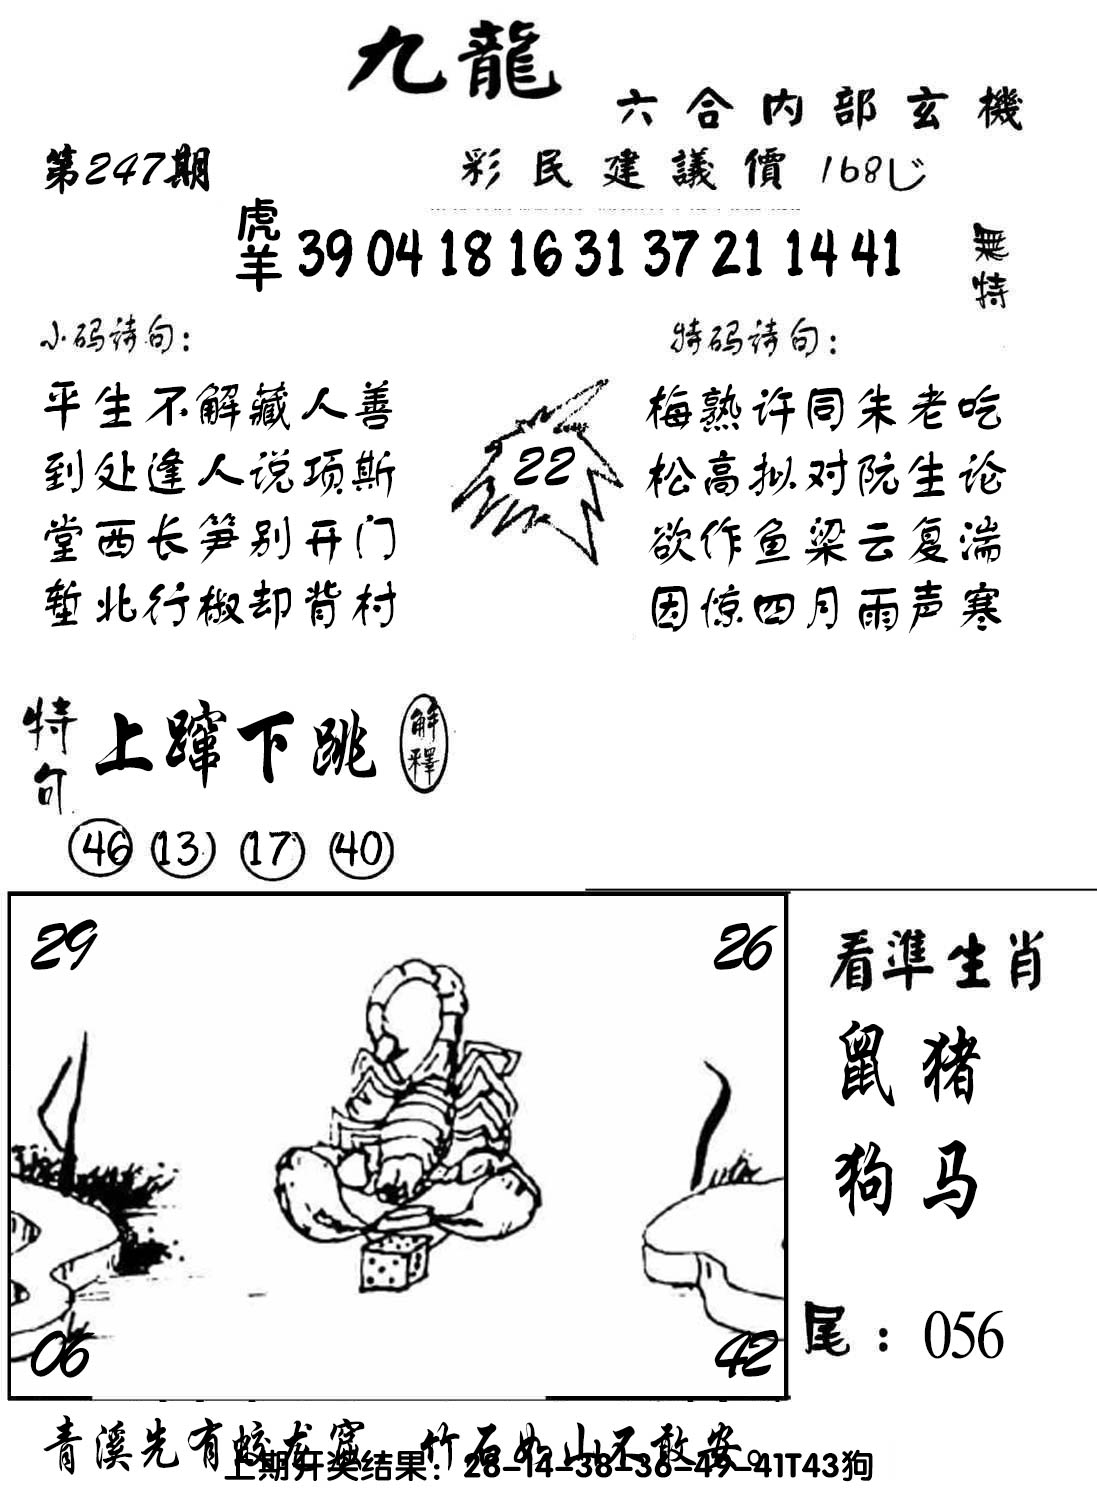 九龍
六合内部玄機
第247期
彩民建議價168
虎羊 39 04 18 16 31 37 21 14 41
無特
小码诗句：
平生不解藏人善
到处逢人说项斯
堂西长笋别开门
堑北行椒却背村
22
特码诗句：
梅熟许同朱老吃
松高拟对阮生论
欲作鱼梁云复湍
因惊四月雨声寒
特句 上蹿下跳 解釋
46 13 17 40
29 26
06 42
看準生肖
鼠猪
狗马
尾：056
青溪先有蛟龙窟 竹石如山不敢安。
上期开奖结果：28-14-38-36-49-41T43狗